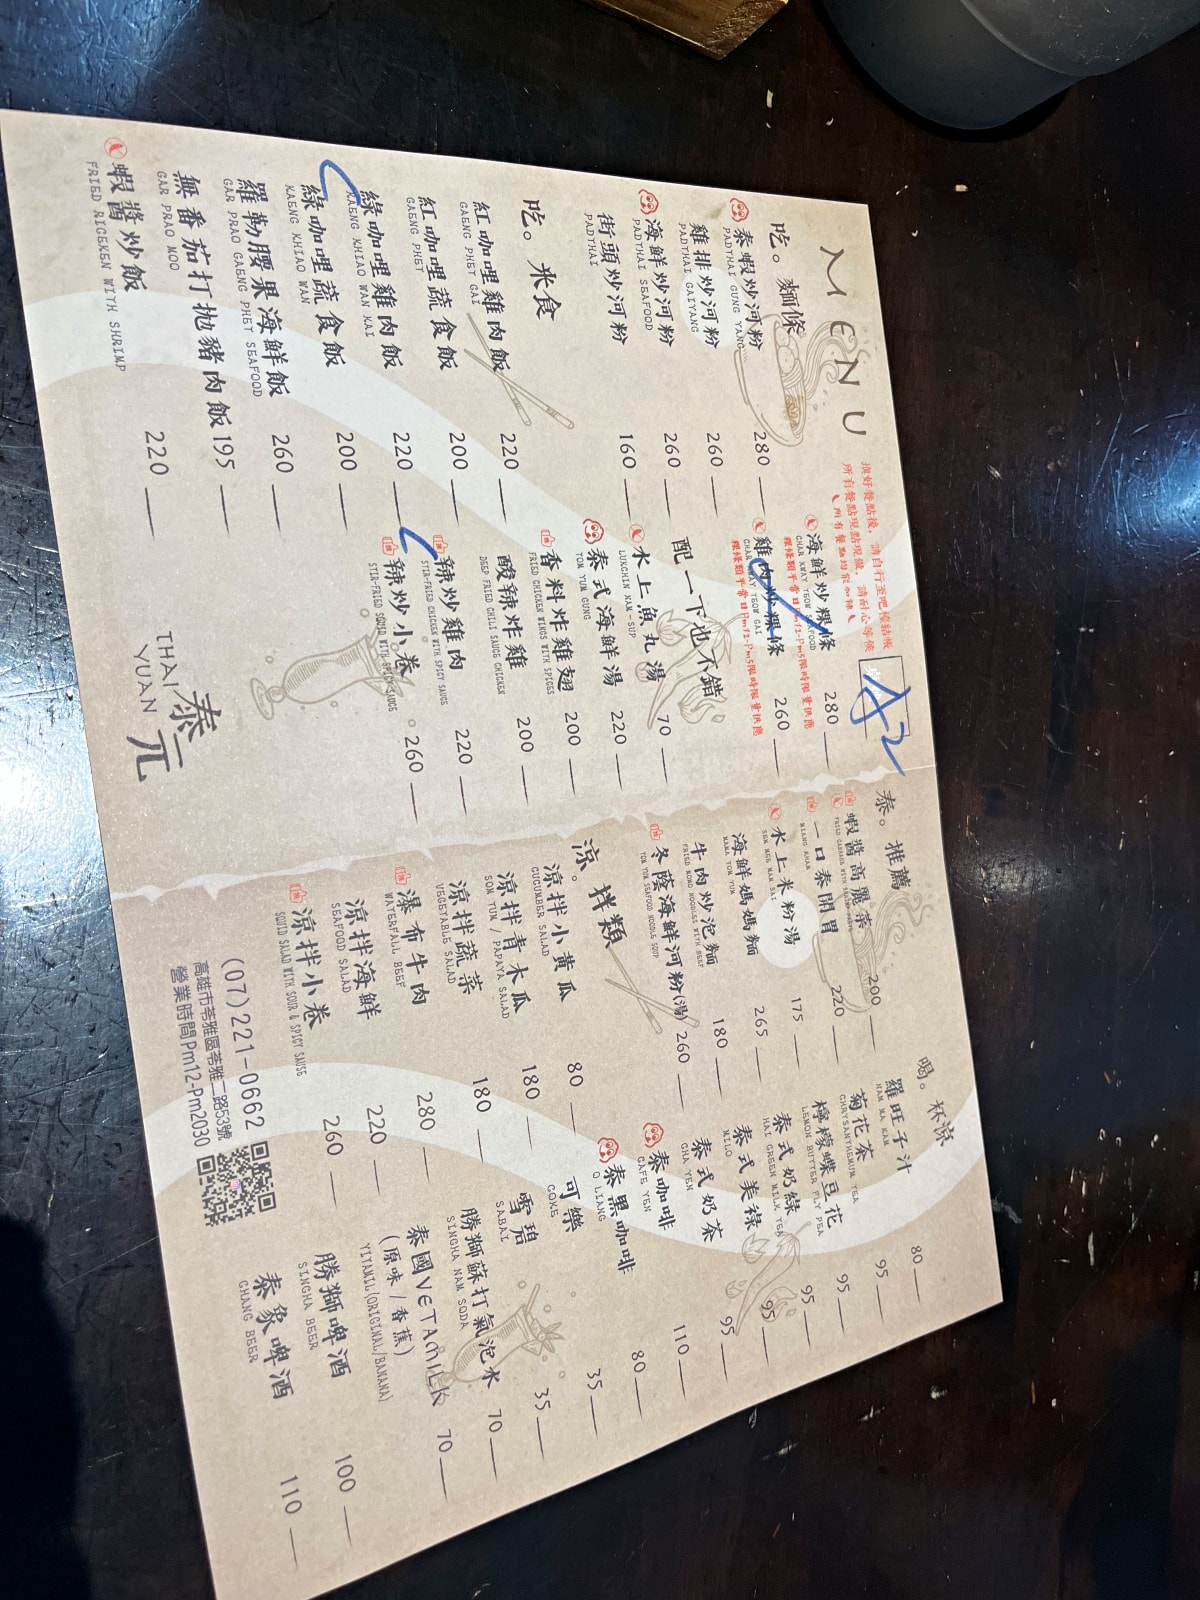 MENU
填好餐點後，請自行至吧檯結帳
所有餐點現點現做，請耐心等候
所有餐點均能加辣
A2
吃。麵條
泰蝦炒河粉 280
PADTHAI GUNG YANG
雞排炒河粉 260
PADTHAI GAIYANG
海鮮炒河粉 260
PADTHAI SEAFOOD
街頭炒河粉 160
PADTHAI
海鮮炒粿條 280
CHAR KWAY TEOW SEAFOOD
粿條類平常日Pm12-Pm5限時限量供應
雞肉炒粿條 260
CHAR KWAY TEOW GAI
粿條類平常日Pm12-Pm5限時限量供應
吃。米食
紅咖哩雞肉飯 220
GAENG PHET GAI
紅咖哩蔬食飯 200
GAENG PHET
綠咖哩雞肉飯 220
KAENG KHIAO WAN KAI
綠咖哩蔬食飯 200
KAENG KHIAO WAN
羅勒腰果海鮮飯 260
GAR PRAO GAENG PHET SEAFOOD
無番茄打拋豬肉飯 195
GAR PRAO MOO
蝦醬炒飯 220
FRIED RICEKEN WITH SHRIMP
配一下也不錯
水上魚丸湯 70
LUKCHIN NAM-SUP
泰式海鮮湯 220
TOM YUM GUNG
香料炸雞翅 200
FRIED CHICKEN WINGS WITH SPICES
酸辣炸雞 200
DEEP FRIED CHILI SAUCE CHICKEN
辣炒雞肉 220
STIR-FRIED CHICKEN WITH SPICY SAUCE
辣炒小卷 260
STIR-FRIED SQUID WITH SPICY SAUCE
泰元
THAI
YUAN
泰。推薦
蝦醬高麗菜 200
一口泰開胃 220
MIANG KHAM
水上米粉湯 175
海鮮媽媽麵 265
MAMA TOM YUM
牛肉炒泡麵 180
FRIED KOKO NOODLES WITH BEEF
冬蔭海鮮河粉(湯) 260
TOM YUM SEAFOOD NOODLE SOUP
涼。拌類
涼拌小黃瓜 80
CUCUMBER SALAD
涼拌青木瓜 180
SOM TUM / PAPAYA SALAD
涼拌蔬菜 180
VEGETABLE SALAD
瀑布牛肉 280
WATERFALL BEEF
涼拌海鮮 220
SEAFOOD SALAD
涼拌小卷 260
SQUID SALAD WITH SOUR & SPICY SAUSE
喝。杯涼
羅旺子汁 80
NAM MA KAM
菊花茶 95
CHRYSANTHEMUM TEA
檸檬蝶豆花 95
LEMON BUTTER FLY PEA
泰式奶綠 95
HAI GREEN MILK TEA
泰式美祿 95
MILO
泰式奶茶 95
CHA YEN
泰咖啡 110
CAFE YEN
泰黑咖啡 80
O LIANG
可樂 35
COKE
雪碧 35
SABAI
勝獅蘇打氣泡水 70
SINGHA NAM SODA
泰國VETAMILK 70
(原味/香蕉)
YITAMIL(ORIGINAL/BANANA)
勝獅啤酒 100
SINGHA BEER
泰象啤酒 110
CHANG BEER
(07)221-0662
高雄市苓雅區苓雅二路53號
營業時間Pm12-Pm2030